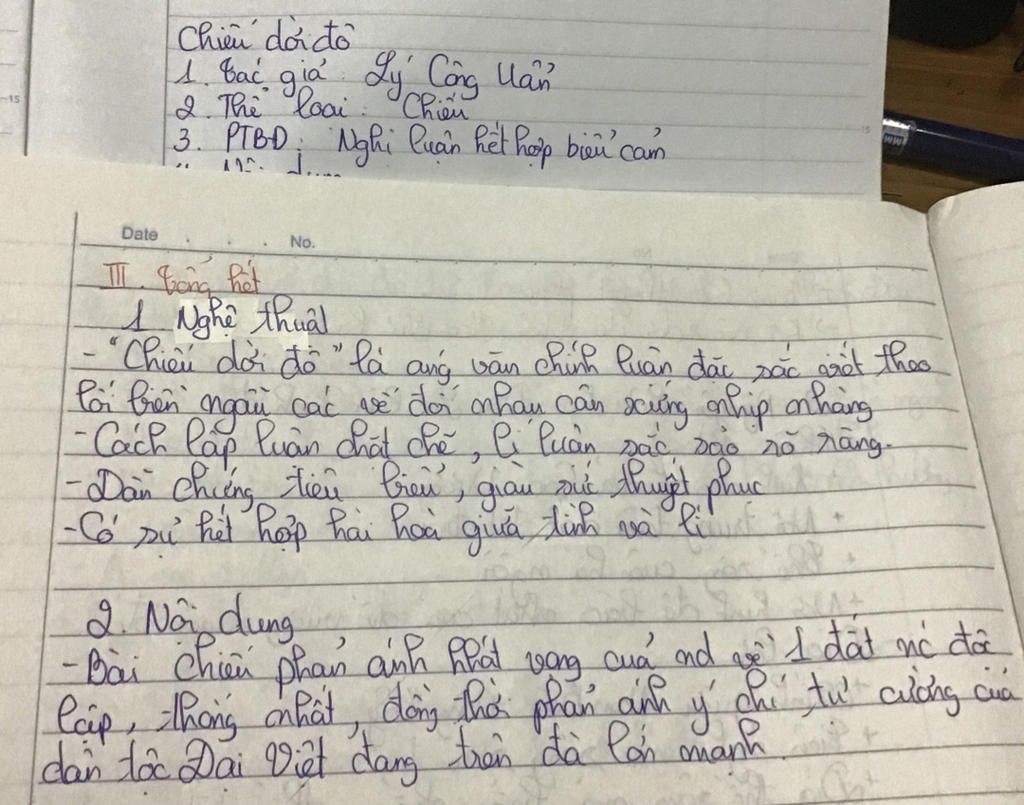 Chiếu dời đô
1. Tác giả: Lý Công Uẩn
2. Thể loại: Chiếu
3. PTBĐ: Nghị luận kết hợp biểu cảm
Date . . . No.
III. Tổng kết
1 Nghệ thuật
- "Chiếu dời đô" là áng văn chính luận đặc sắc viết theo
lối biền ngẫu các vế đối nhau cân xứng nhịp nhàng
- Cách lập luận chặt chẽ, lí luận sắc sảo rõ ràng.
- Dẫn chứng tiêu biểu, giàu sức thuyết phục
- Có sự kết hợp hài hoà giữa tình và lí
2. Nội dung
- Bài chiếu phản ánh khát vọng của nd về 1 đất nc độc
lập, thống nhất, đồng thời phản ánh ý chí tự cường của
dân tộc Đại Việt đang trên đà lớn mạnh